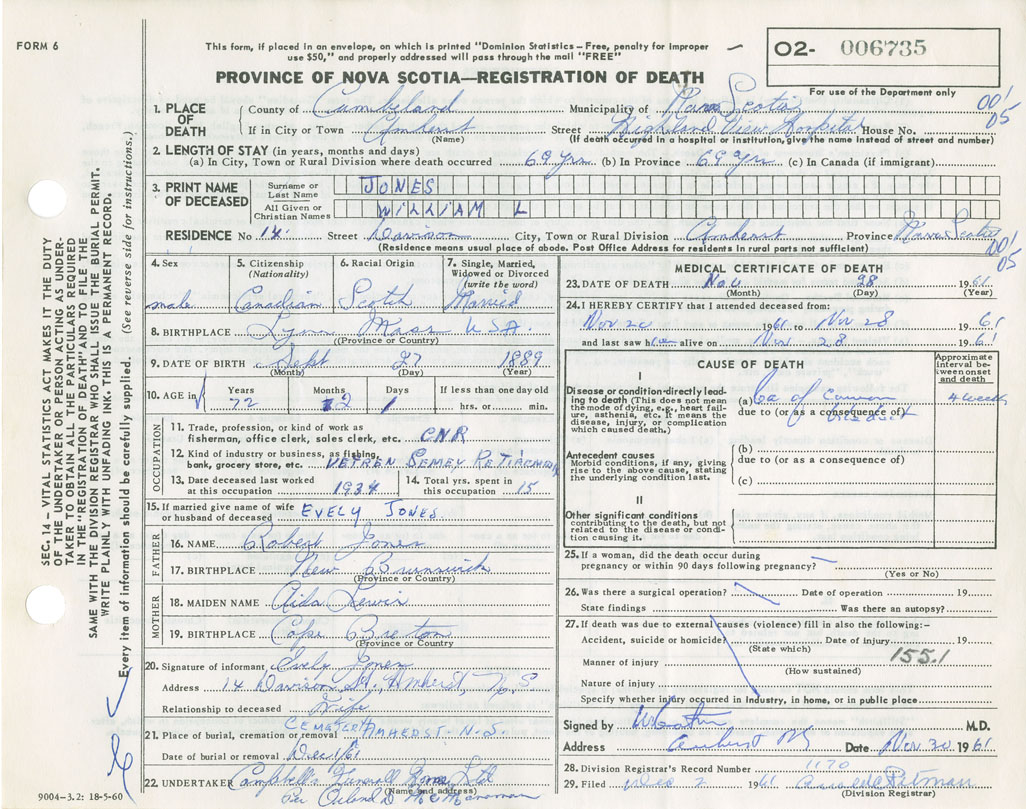 FORM 6
This form, if placed in an envelope, on which is printed "Dominion Statistics – Free, penalty for improper
use $50," and properly addressed will pass through the mail "FREE"
O2- 006735
For use of the Department only
PROVINCE OF NOVA SCOTIA—REGISTRATION OF DEATH
001
05
1. PLACE OF DEATH
County of Cumbeland Municipality of Nova Scotia
If in City or Town Amherst Street Highland View Hospital House No.
(Name) (If death occurred in a hospital or institution, give the name Instead of street and number)
2. LENGTH OF STAY (in years, months and days)
(a) In City, Town or Rural Division where death occurred 69 yrs (b) In Province 69 yrs (c) In Canada (if immigrant)
3. PRINT NAME OF DECEASED
Surname or Last Name JONES
All Given or Christian Names WILLIAM L
RESIDENCE No 14 Street Davison City, Town or Rural Division Amherst Province Nova Scotia
(Residence means usual place of abode. Post Office Address for residents in rural parts not sufficient)
001
05
4. Sex male
5. Citizenship (Nationality) Canadian
6. Racial Origin Scotch
7. Single, Married, Widowed or Divorced (write the word) Married
8. BIRTHPLACE Lynn Mass USA.
(Province or Country)
9. DATE OF BIRTH Sept 27 1889
(Month) (Day) (Year)
10. AGE in Years 72 Months 2 Days 1 If less than one day old hrs. or min.
OCCUPATION
11. Trade, profession, or kind of work as
fisherman, office clerk, sales clerk, etc. CNR
12. Kind of industry or business, as fishing,
bank, grocery store, etc. VETREN
13. Date deceased last worked at this occupation 1934
14. Total yrs. spent in this occupation 15
15. If married give name of wife or husband of deceased EVELY JONES.
FATHER
16. NAME Robert Jones
17. BIRTHPLACE New Brunswick
(Province or Country)
MOTHER
18. MAIDEN NAME Aida Lewis
19. BIRTHPLACE Cape Breton
(Province or Country)
20. Signature of informant Evely Jones
Address 14 Davison St., Amherst, N.S
Relationship to deceased Wife
21. Place of burial, cremation or removal CEMETERY AMHERST-N.S.
Date of burial or removal Dec 1/61
22. UNDERTAKER Campbells Funerall Home Ltd
(Name and address)
Per
MEDICAL CERTIFICATE OF DEATH
23. DATE OF DEATH Nov 28 1961
(Month) (Day) (Year)
24. I HEREBY CERTIFY that I attended deceased from:
Nov 20 1961 to Nov 28 1961
and last saw him alive on Nov 28 1961
CAUSE OF DEATH
Approximate interval between onset and death
I
Disease or condition-directly leading to death (This does not mean
the mode of dying, e.g., heart failure, asthenia, etc. It means the
disease, injury, or complication which caused death.)
(a) Ca of Common bile duct 4 weeks
due to (or as a consequence of)
Antecedent causes
Morbid conditions, if any, giving
rise to the above cause, stating the
underlying condition last.
(b)
due to (or as a consequence of)
(c)
II
Other significant conditions
contributing to the death, but not
related to the disease or condition causing it.
25. If a woman, did the death occur during
pregnancy or within 90 days following pregnancy?
(Yes or No)
26. Was there a surgical operation? Date of operation 19
State findings Was there an autopsy?
27. If death was due to external causes (violence) fill in also the following:–
Accident, suicide or homicide Date of injury 19
(State which)
155.1
Manner of injury
(How sustained)
Nature of injury
Specify whether injury occurred in Industry, in home, or in public place
Signed by M.D.
Address Amherst NS Date Nov 30 1961
28. Division Registrar's Record Number 1170
29. Filed Dec 2 1961
(Division Registrar)
SEC. 14 – VITAL STATISTICS ACT MAKES IT THE DUTY
OF THE UNDERTAKER OR PERSON ACTING AS UNDERTAKER TO OBTAIN ALL THE PARTICULARS REQUIRED
IN THE "REGISTRATION OF DEATH" AND TO FILE THE
SAME WITH THE DIVISION REGISTRAR WHO SHALL ISSUE THE BURIAL PERMIT.
WRITE PLAINLY WITH UNFADING INK. THIS IS A PERMANENT RECORD.
Every item of information should be carefully supplied. (See reverse side for instructions.)
9004–3.2: 18-5-60